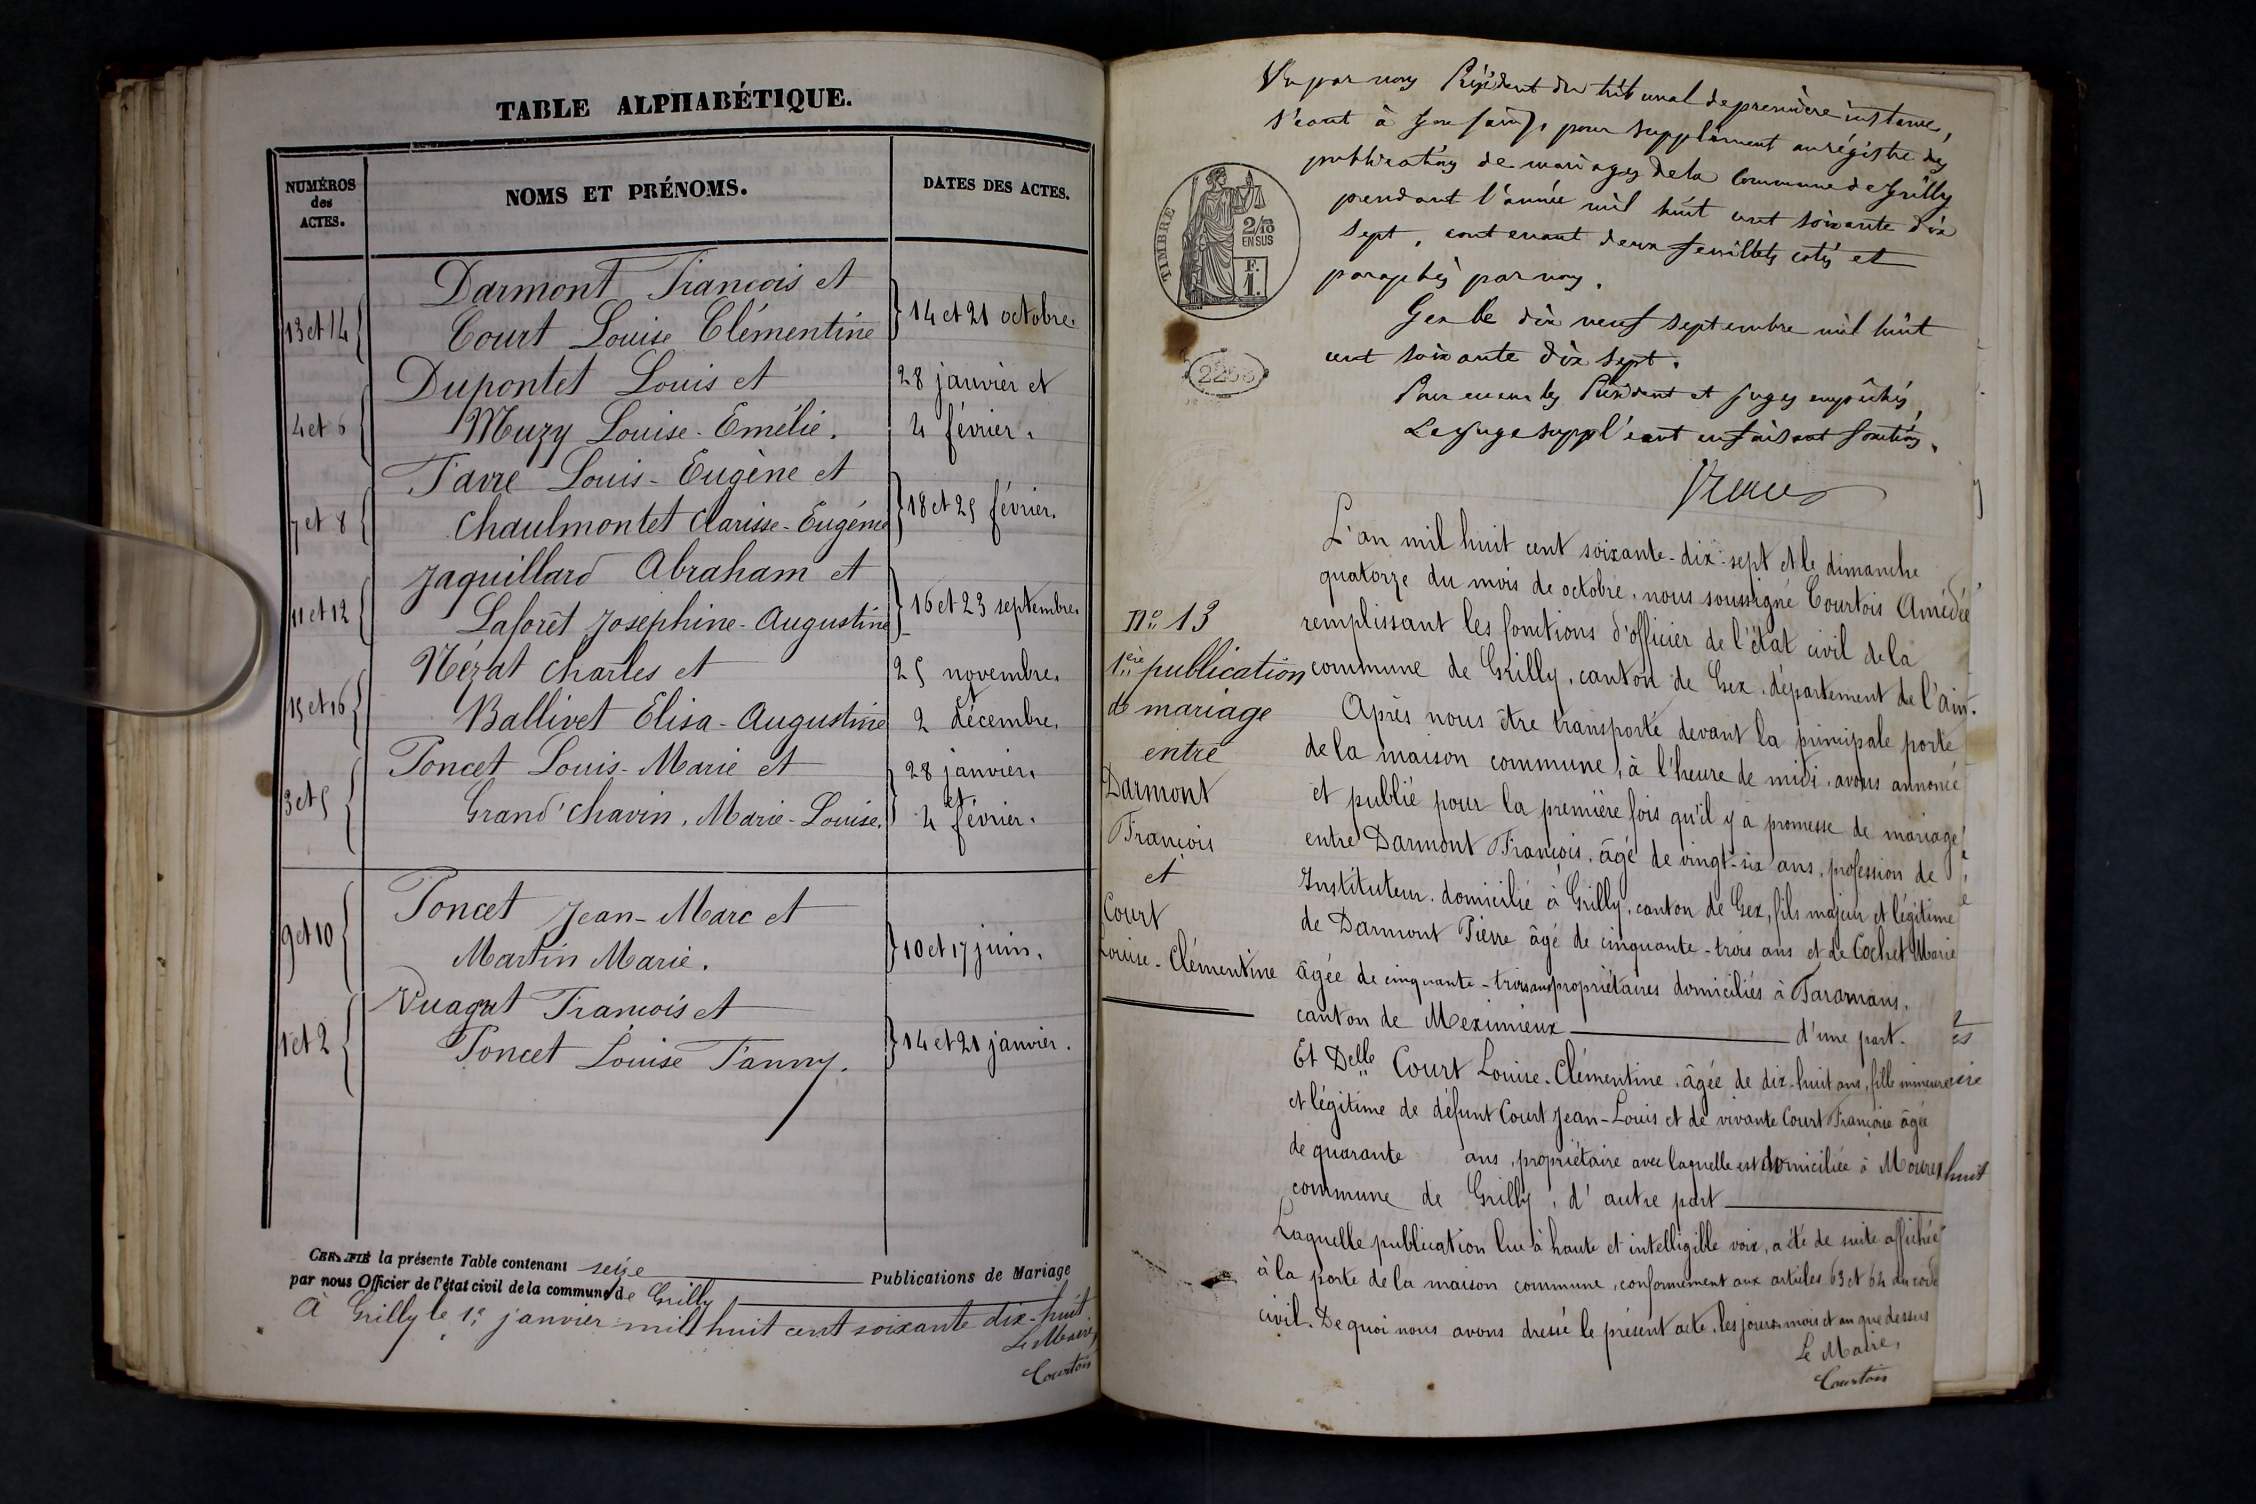 TABLE ALPHABÉTIQUE.
NUMÉROS
des
ACTES.
NOMS ET PRÉNOMS.
DATES DES ACTES.
13 et 14
Darmont François et
Court Louise Clémentine
14 et 21 octobre.
4 et 6
Dupontet Louis et
Muzy Louise-Emélie.
28 janvier et
4 février.
7 et 8
Favre Louis-Eugène et
Chaulmontet Clarisse-Eugénie
18 et 25 février.
11 et 12
Jaquillard Abraham et
Laforêt Josephine-Augustine
16 et 23 septembre.
15 et 16
Nézat Charles et
Ballivet Elisa-Augustine
25 novembre.
et
2 décembre.
3 et 5
Poncet Louis-Marie et
Grand'Chavin, Marie-Louise.
28 janvier.
et
4 février.
9 et 10
Poncet Jean-Marc et
Martin Marie.
10 et 17 juin.
1 et 2
Vuagnat François et
Poncet Louise Fanny.
14 et 21 janvier.
CERTIFIÉ la présente Table contenant seize Publications de Mariage
par nous Officier de l'état civil de la commune de Grilly
À Grilly le 1er janvier mill huit cent soixante dix-huit
Le Maire,
Courtois
Vu par nous Président du tribunal de première instance,
séant à Gex pour supplément au régistre des
publications de mariages de la Commune de Grilly
pendant l'année mil huit cent soixante dix
sept, contenant deux feuillets cotés et
paraphés par nous.
Gex le dix neuf septembre mil huit
cent soixante dix sept.
Pour les Président et Juges empêchés,
Le Juge suppléant en faisant fonctions,
TIMBRE
2/10
EN SUS
F.
1.
N° 13
1ère publication
de mariage
entre
Darmont
François
et
Court
Louise-Clémentine
L'an mil huit cent soixante-dix-sept et le dimanche
quatorze du mois de octobre, nous soussigné Courtois Amédée
remplissant les fonctions d'officier de l'état civil de la
commune de Grilly, canton de Gex, département de l'ain.
Après nous être transporté devant la principale porte
de la maison commune, à l'heure de midi, avons annoncé
et publié pour la première fois qu'il y a promesse de mariage
entre Darmont François, âgé de vingt-six ans, profession de
Instituteur, domicilié à Grilly, canton de Gex, fils majeur et légitime
de Darmont Pierre âgé de cinquante-trois ans et de Cochet Marie
âgée de cinquante-trois ans propriétaires domiciliés à Faramans,
canton de Meximieux d'une part.
Et Delle Court Louise-Clémentine, âgée de dix-huit ans, fille mineure
et légitime de défunt Court Jean-Louis et de vivante Court Françoise âgée
de quarante ans, propriétaire avec laquelle est domiciliée à Mourex
commune de Grilly, d'autre part
Laquelle publication lue à haute et intelligible voix, a été de suite affichée
à la porte de la maison commune, conformément aux articles 63 et 64 du code
civil. De quoi nous avons dressé le présent acte, les jour, mois et an que dessus
Le Maire,
Courtois
huit